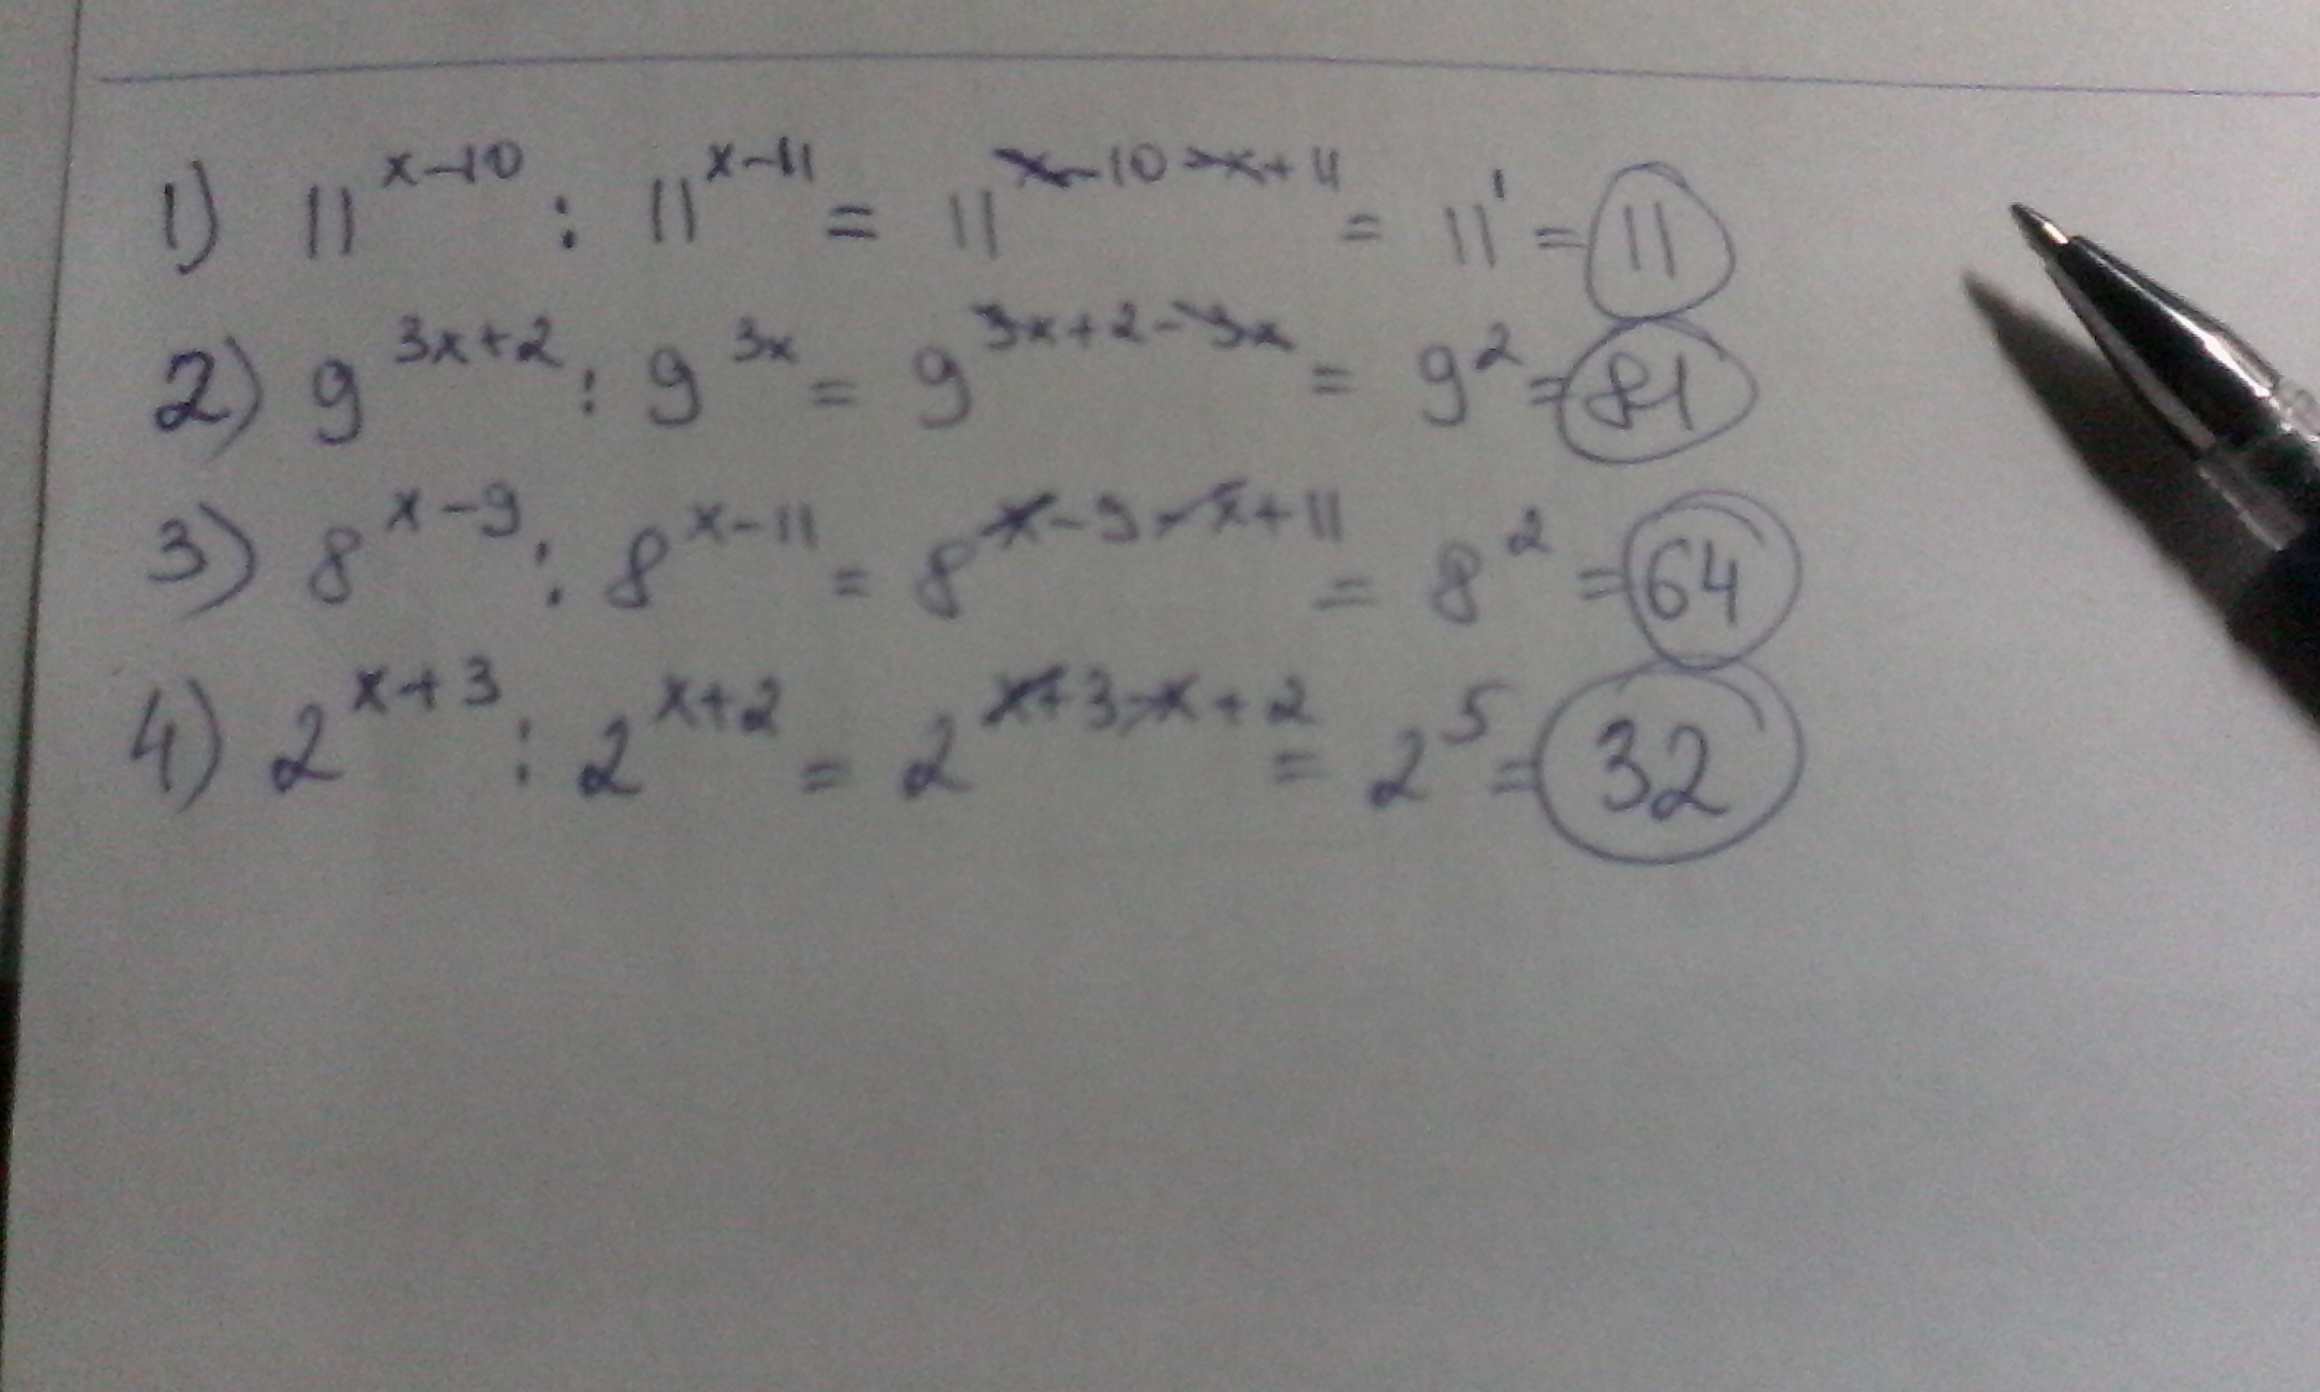 1) 11^(x-10) : 11^(x-11) = 11^(x-10-x+11) = 11^1 = 11
2) 9^(3x+2) : 9^(3x) = 9^(3x+2-3x) = 9^2 = 81
3) 8^(x-9) : 8^(x-11) = 8^(x-9-x+11) = 8^2 = 64
4) 2^(x+3) : 2^(x+2) = 2^(x+3-x+2) = 2^5 = 32